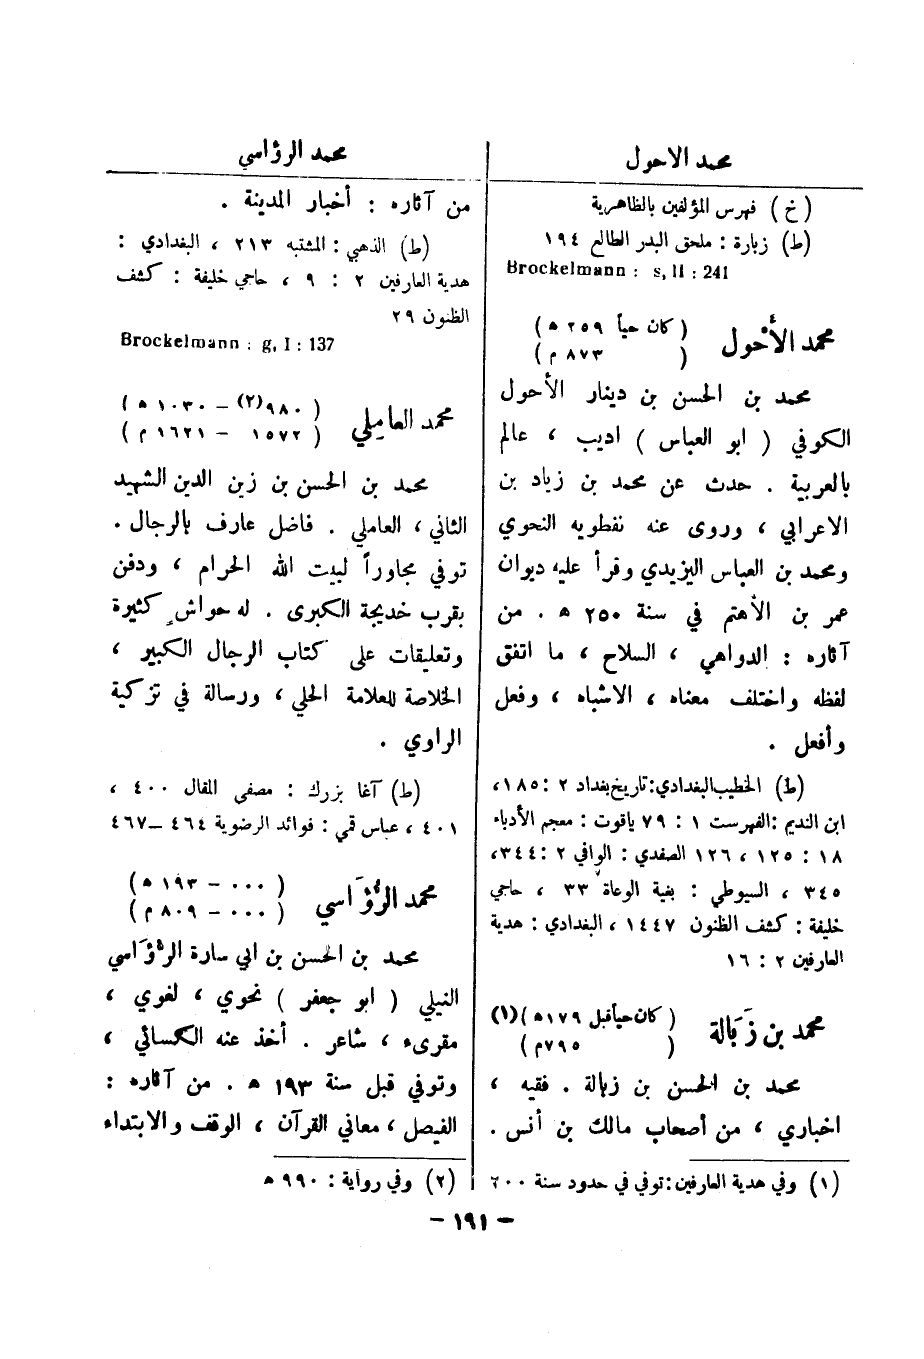 محمد الاحول
(خ) فهرس المؤلفين بالظاهرية
(ط) زبارة : ملحق البدر الطالع ١٩٤
Brockelmann : s, II : 241
محمد الأحْول ( كان حياً ٢٥٩ ه )
( ٨٧٣ م )
محمد بن الحسن بن دينار الأحول
الكوفي ( ابو العباس ) اديب ، عالم
بالعربية . حدث عن محمد بن زياد بن
الاعرابي ، وروى عنه نفطويه النحوي
ومحمد بن العباس اليزيدي وقرأ عليه ديوان
عمر بن الأهتم في سنة ٢٥٠ ه . من
آثاره : الدواهي ، السلاح ، ما اتفق
لفظه واختلف معناه ، الاشباه ، وفعل
وأفعل .
(ط) الخطيب البغدادي : تاريخ بغداد ٢ : ١٨٥،
ابن النديم : الفهرست ١ : ٧٩ ياقوت : معجم الأدباء
١٨ : ١٢٥ ، ١٢٦ الصفدي : الوافي ٢ : ٣٤٤،
٣٤٥ ، السيوطي : بغية الوعاة ٣٣ ، حاجي
خليفة : كشف الظنون ١٤٤٧ ، البغدادي : هدية
العارفين ٢ : ١٦
محمد بن زَبَالة ( كان حياً قبل ١٧٩ه )(١)
( ٧٩٥م )
محمد بن الحسن بن زبالة . فقيه ،
اخباري ، من أصحاب مالك بن أنس .
(١) وفي هدية العارفين : توفي في حدود سنة ٢٠٠
محمد الرؤاسي
من آثاره : أخبار المدينة .
(ط) الذهبي : المشتبه ٢١٣ ، البغدادي :
هدية العارفين ٢ : ٩ ، حاجي خليفة : كشف
الظنون ٢٩
Brockelmann : g, I : 137
محمد العاملي ( ٩٨٠(٢) – ١٠٣٠ ه )
( ١٥٧٢ – ١٦٢١ م )
محمد بن الحسن بن زين الدين الشهيد
الثاني ، العاملي . فاضل عارف بالرجال .
توفي مجاوراً لبيت الله الحرام ، ودفن
بقرب خديجة الكبرى . له حواشٍ كثيرة
وتعليقات على كتاب الرجال الكبير ،
الخلاصة للعلامة الحلي ، ورسالة في تزكية
الراوي .
(ط) آغا بزرك : مصفى المقال ٤٠٠ ،
٤٠١ ، عباس قمي : فوائد الرضوية ٤٦٤ – ٤٦٧
محمد الرُؤَاسي ( ٠٠٠ – ١٩٣ ه )
( ٠٠٠ – ٨٠٩ م )
محمد بن الحسن بن ابي سارة الرؤَاسي
النيلي ( ابو جعفر ) نحوي ، لغوي ،
مقرىء ، شاعر . أخذ عنه الكسائي ،
وتوفي قبل سنة ١٩٣ ه . من آثاره :
الفيصل ، معاني القرآن ، الوقف والابتداء
(٢) وفي رواية : ٩٩٠ ه
– ١٩١ –